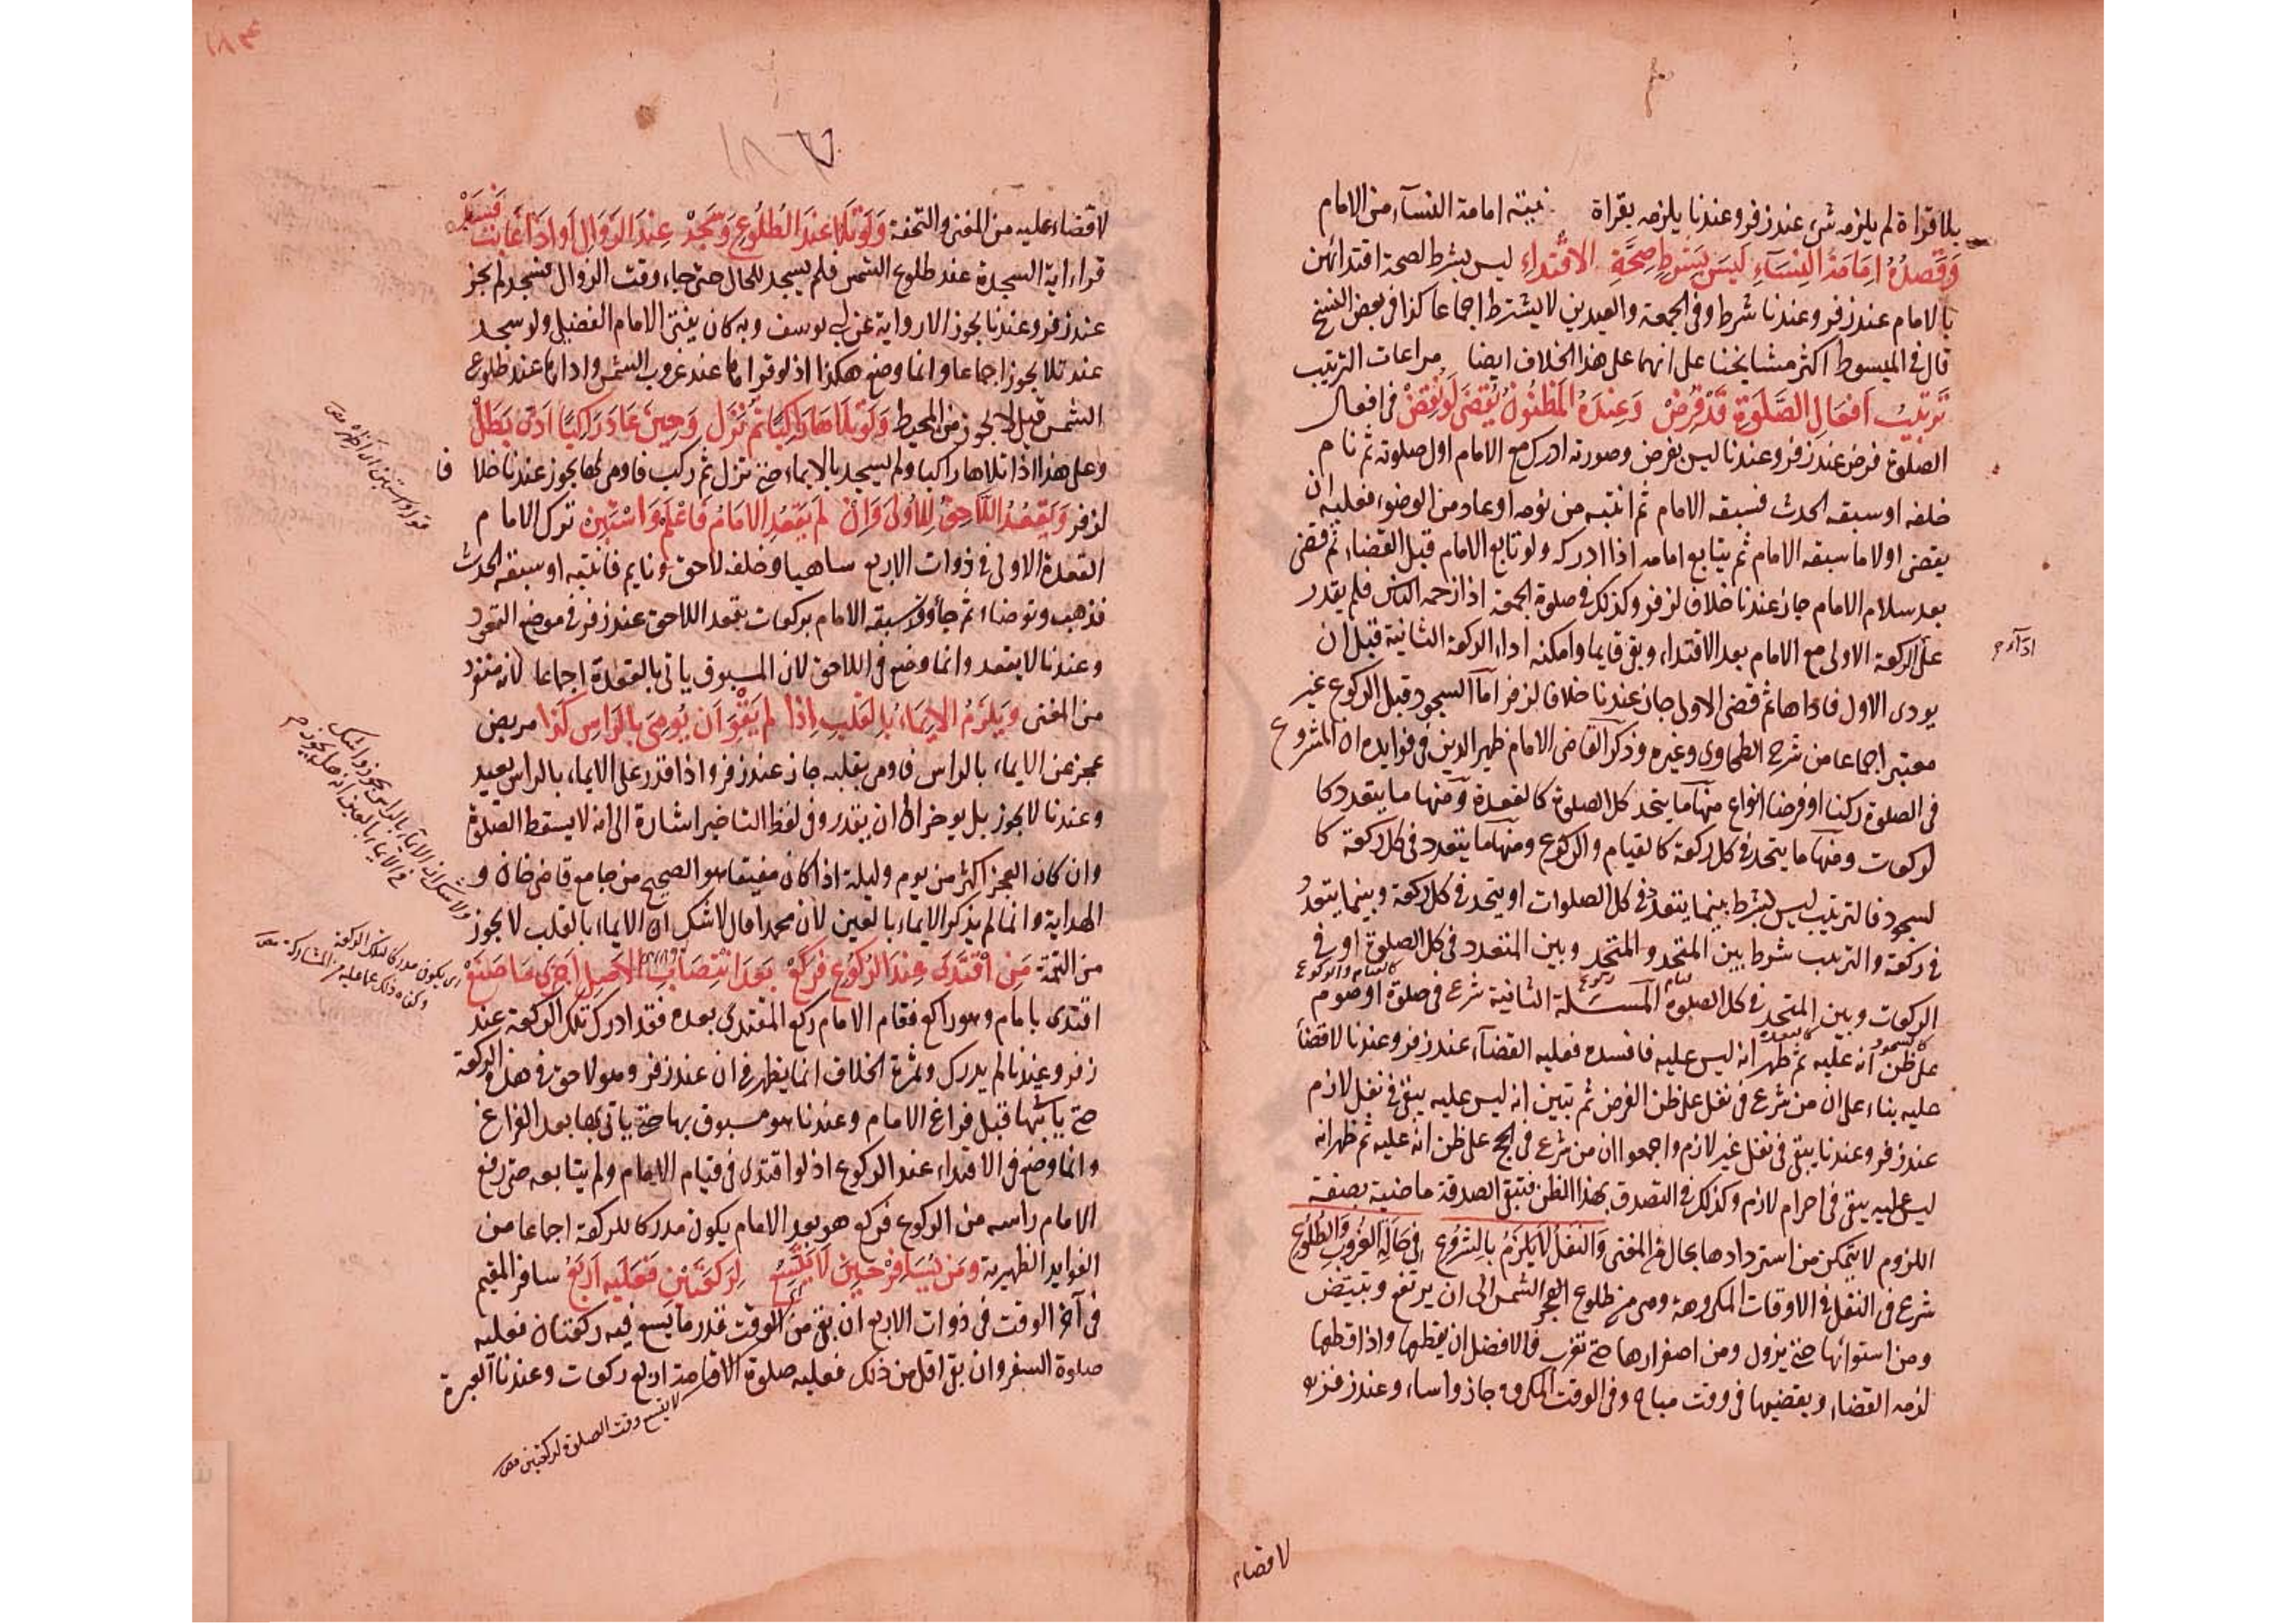 بلا قراة لم يلزمه شىء عند زفر وعندنا يلزمه بقراة نيته امامة النسآء من الامام
وَقَصْدُهُ اِمَامَةَ النِّسَآءِ لَيْسَ بِشَرْطِ صِحَّةِ الاقْتِدَاءِ ليس بشرط لصحة اقتدائهن
بالامام عند زفر وعندنا شرط وفى الجمعة والعيدين لا يشترط اجماعا كذا فى بعض النسخ
قال فى المبسوط اكثر مشايخنا على انهما على هذا الخلاف ايضا مراعات الترتيب
تَرتيبُ اَفعَالِ الصَّلَوةِ قَدْ فُرِضْ وَعِندَهُ المَظنُونُ يُقضَى لَو نُقِضْ فى افعال
الصلوة فرض عند زفر وعندنا ليس بفرض وصورته ادرك مع الامام اول صلوته ثم نام
خلفه او سبقه الحدث فسبقه الامام ثم انتبه من نومه او عاد من الوضوء فعليه ان
يقضى اولا ما سبقه الامام ثم يتابع امامه اذا ادركه ولو تابع الامام قبل القضاء ثم قضى
بعد سلام الامام جاز عندنا خلاف لزفر وكذلك فى صلوة الجمعة اذا زحمه الناس فلم يقدر
على الركعة الاولى مع الامام بعد الاقتداء وبقى قايما وامكنه اداء الركعة الثانية قبل ان
يودى الاول فاداها ثم قضى الاولى جاز عندنا خلافا لزفر اما السجود قبل الركوع غير
معتبر اجماعا من شرح الطحاوى وغيره وذكر القاضى الامام ظهير الدين فى فوايده ان المشروع
فى الصلوة ركنا او فرضا انواع منها ما يتحد كل الصلوة كالقعدة ومنها ما يتعدد كا
لركعات ومنها ما يتحد فى كل ركعة كالقيام والركوع ومنها ما يتعدد فى كل ركعة كا
لسجود فالترتيب ليس بشرط بينما يتعدد فى كل الصلوات او يتحد فى كل ركعة وبينما يتعدد
فى ركعة والترتيب شرط بين المتحد والمتحد وبين المتعدد فى كل الصلوة او فى
كالقيام والركوع
الركعات وبين المتحد فى كل الصلوة المسئلة الثانية شرع فى صلوة او صوم
على ظن انه عليه ثم ظهر انه ليس عليه فافسده فعليه القضآء عند زفر وعندنا لا قضأ
عليه بناء على ان من شرع فى نفل على ظن الفرض ثم تبين انه ليس عليه يبقى فى نفل لازم
عند زفر وعندنا يبقى فى نفل غير لازم واجمعوا ان من شرع فى الحج على ظن انه عليه ثم ظهر انه
ليس عليه يبقى فى احرام لازم وكذلك فى التصدق بهذا الظن فتبقى الصدقة ماضية بصفة
اللزوم لا يتمكن من استردادها بحال من المغنى وَالنَفلُ لَا يَلزَمُ بِالشُرُوعِ فى حَالَةِ الغُرُوبِ وَالطُلُوعِ
شرع فى النفل فى الاوقات المكروهة وهى من طلوع الفجر الشمس الى ان يرتفع وتبيض
ومن استوائها حتى يزول ومن اصفرارها حتى تغرب فالافضل ان يقطعها واذا قطعها
لزمه القضاء ويقضيها فى وقت مباح وفى الوقت المكروه جاز واساء وعند زفر
لا قضاء
١٨٦٧
لا قضاء عليه من المغنى والتحفة وَلَو تَلَا عِندَ الطُلُوعِ وَسَجَدْ عِندَ الزَّوَالِ اَو اَدَا غَابَت فَسَدْ
قراء اية السجدة عند طلوع الشمس فلم يسجد للحال حتى جاء وقت الزوال فسجد لم يجز
عند زفر وعندنا يجوز الا رواية عن ابى يوسف وبه كان يفتى الامام الفضيلى ولو سجد
عند تلا يجوز اجماعا وانما وضع هكذا اذ لو قراها عند غروب الشمس واداها عند طلوع
الشمس قبل لا يجوز من المحيط وَلَو تَلَاهَا رَاكِبًا ثُمَ نَزَل وَحِينَ عَادَ رَاكِبًا اَدَّى بَطَلْ
وعلى هذا اذا تلاها راكبا ولم يسجد بالايماء حتى نزل ثم ركب فاومى لها يجوز عندنا خلا فا
لزفر وَيَقعُدُ اللَّاحِقُ لِلاُولَى وَاِنْ لَم يَقعُدِ الاِمَامُ فَاعْلَم وَاسْتَبِن ترك الامام
القعدة الاولى فى ذوات الاربع ساهيا وخلفه لاحق ونايم فانتبه او سبقه الحدث
فذهب وتوضاء ثم جأ وقد سبقه الامام بركعات يقعد اللاحق عند زفر فى موضع القعود
وعندنا لا يقعد وانما وضع فى اللاحق لان المسبوق ياتى بالقعدة اجماعا لانه منفرد
من المغنى وَيَلزَمُ الاِيمَاءُ بِالقَلبِ اِذَا لَم يَقْوَ اَن يُومِىَ بِالرَاسِ كَذَا مريض
عجز عن الايماء بالراس فاومى بقلبه جاز عند زفر واذا قدر على الايماء بالراس يعيد
وعندنا لا يجوز بل يوخر الى ان يقدر وفى لفظ التاخير اشارة الى انه لا يسقط الصلوة
وان كان العجز اكثر من يوم وليلة اذا كان مفيقا هو الصحيح من جامع قاضى خان و
الهداية وانما لم يذكر الايماء بالعين لان محمدا قال لا شك ان الايماء بالقلب لا يجوز
من التتمة مَنِ اقْتَدَى عِندَ الرُكُوعِ فَرَكَعْ بَعدَ انْتِصَابِ الاَصلِ اَجزَى مَا صَنَعْ
اقتدى بامام وهو راكع فقام الامام ركع المقتدى بعده فقد ادرك تلك الركعة عند
زفر وعندنا لم يدرك وثمرة الخلاف انما يظهر فى ان عند زفر وهو لاحق فى هذه الركعة
حتى ياتيها قبل فراغ الامام وعندنا هو مسبوق بها حتى ياتى بها بعد الفراغ
وانما وضع فى الاقتداء عند الركوع اذ لو اقتدى فى قيام الامام ولم يتابعه حتى رفع
الامام راسه من الركوع فركع هو بعد الامام يكون مدركا للركعة اجماعا من
الفوايد الظهيرية وَمَن يُسَافِرْ حِينَ لَا يَتَّسِعُ لِرَكعَتَيْنِ فَعَلَيهِ اَربَعُ سافر المقيم
فى آخر الوقت فى ذوات الاربع ان بقى من الوقت قدر ما يسع فيه ركعتان فعليه
صلوة السفر وان بقى اقل من ذلك فعليه صلوة الاقامة اربع ركعات وعندنا العبرة
لا يتسع وقت الصلوة لركعتين